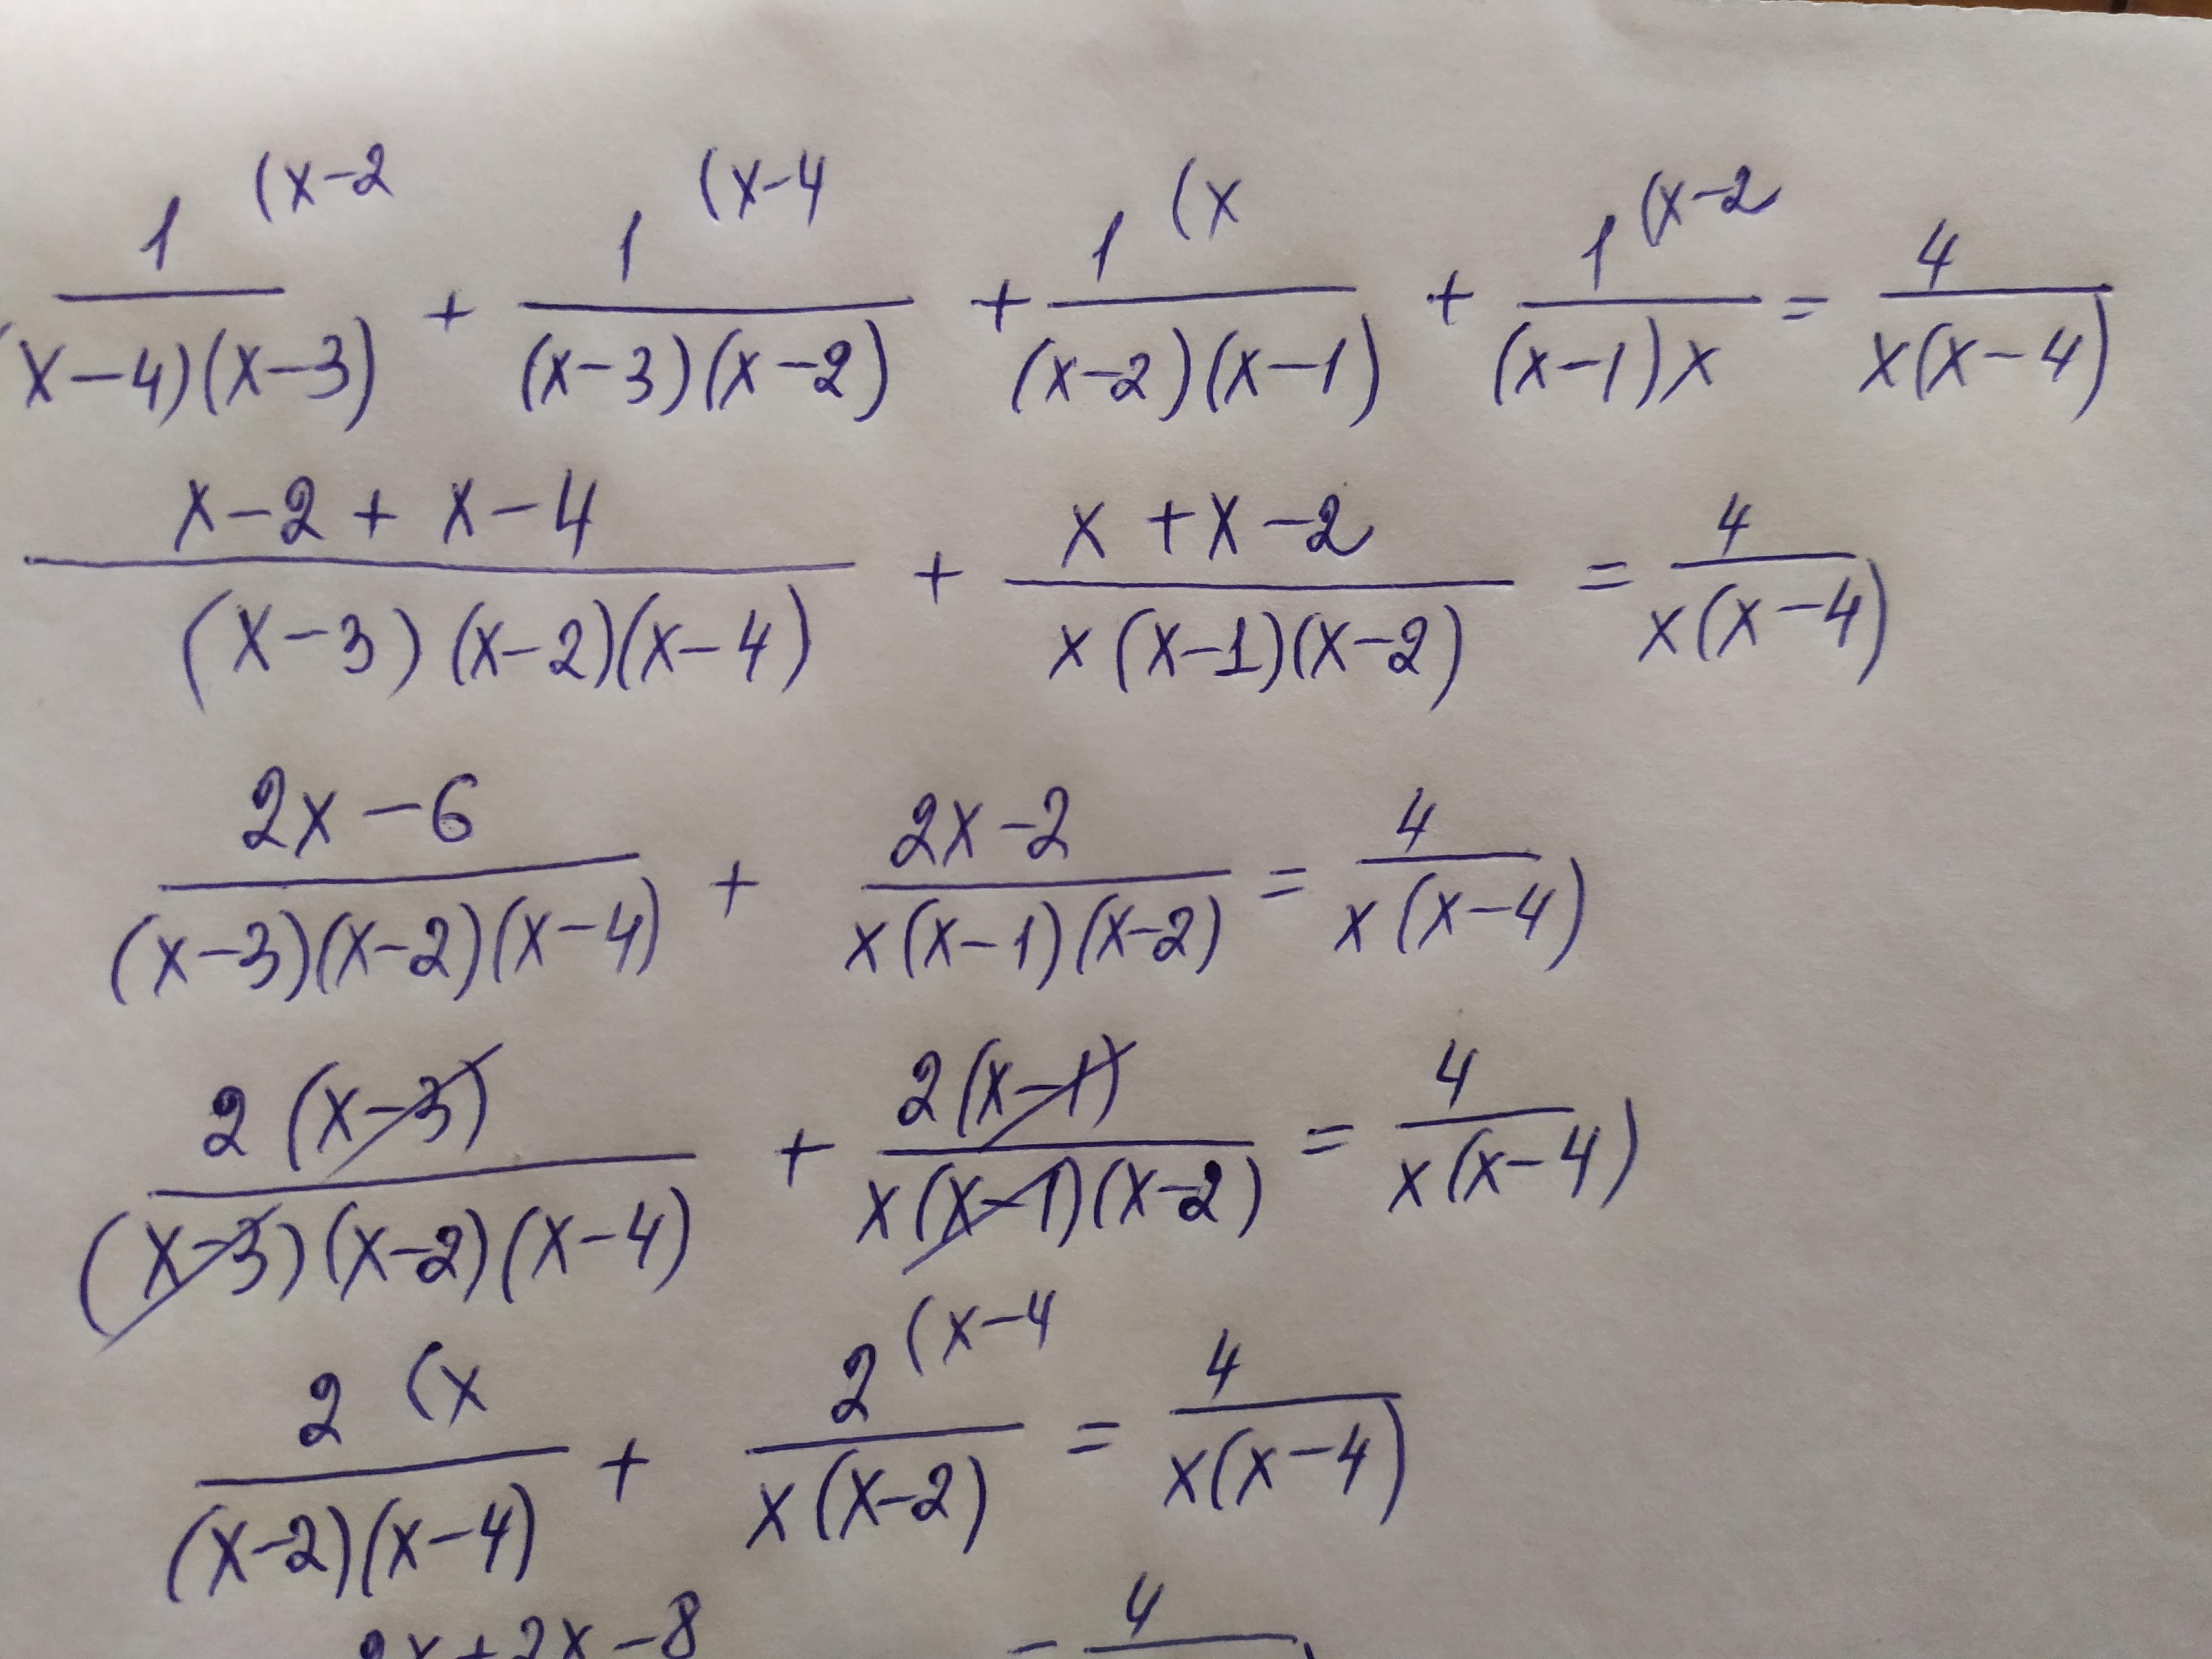 1 (x-2 / (x-4)(x-3) + 1 (x-4 / (x-3)(x-2) + 1 (x / (x-2)(x-1) + 1 (x-2 / (x-1)x = 4 / x(x-4)
x-2+x-4 / (x-3)(x-2)(x-4) + x+x-2 / x(x-1)(x-2) = 4 / x(x-4)
2x-6 / (x-3)(x-2)(x-4) + 2x-2 / x(x-1)(x-2) = 4 / x(x-4)
2(x-3) / (x-3)(x-2)(x-4) + 2(x-1) / x(x-1)(x-2) = 4 / x(x-4)
2 (x / (x-2)(x-4) + 2 (x-4 / x(x-2) = 4 / x(x-4)
2x+2x-8 = 4